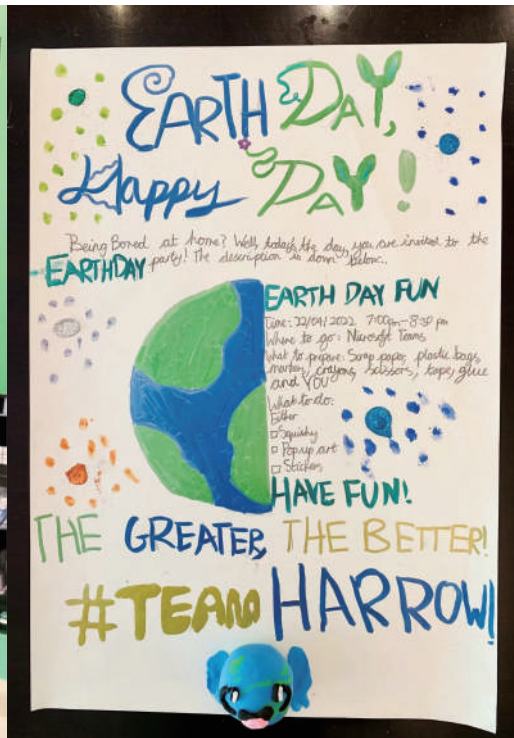 EARTH DAY,
Happy DAY!
Being Bored at home? Well, today's the day, you are invited to the
EARTHDAY party! The description is down below...
EARTH DAY FUN
Time: 22/04/2022 7:00pm-8:30 pm
Where to go: Microsoft Teams
What to prepare: Scrap paper, plastic bags,
markers, crayons, scissors, tape, glue
and YOU
What to do:
Either
Squishy
Pop up art
Stickers
HAVE FUN!
THE GREATER, THE BETTER!
#TEAM HARROW!